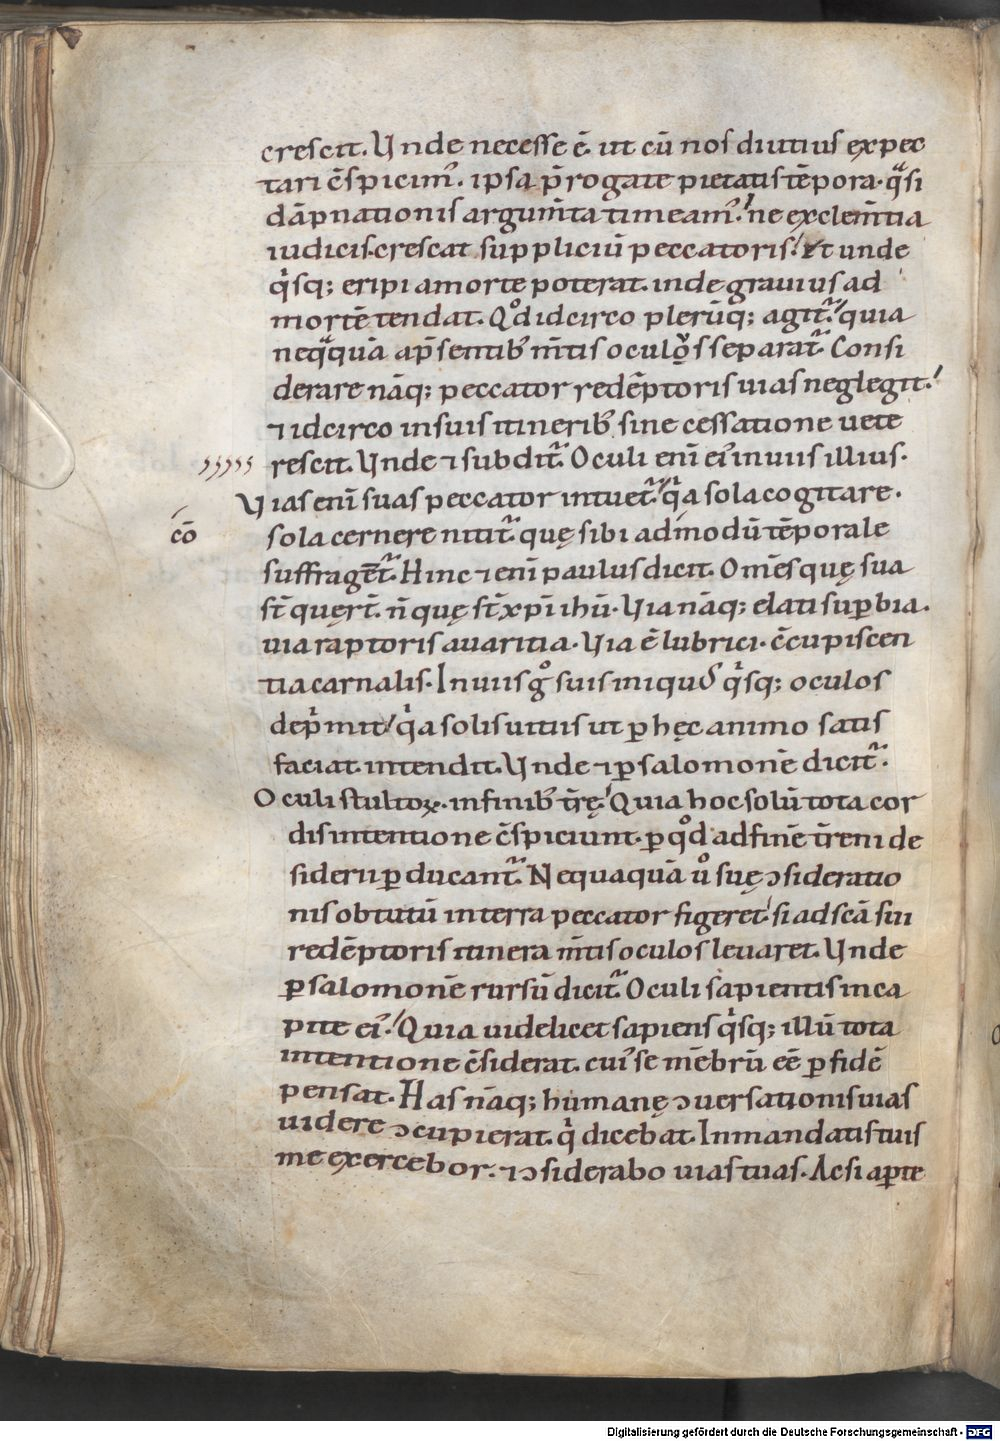 crescit. Unde necesse ē. ut cū nos diutius expec
tari c̄spicim᾿. ipsa p̄rogatę pietatis tēpora. qᵃsi
dāpnationis argum̄ta timeam᾿. ne ex clem̄tia
iudicis. crescat suppliciū peccatoris. Et unde
qⁱsq; eripi a morte poterat. inde gravius ad
mortē tendat. Qᵒd idcirco plerūq; agit᷑. quia
neqᵃquā a p̄sentib᾿ m̄tis oculos separat᷑. Consi
derare nāq; peccator redēptoris vias neglegit.
⁊ idcirco in suis itinerib᾿ sine cessatione vete
rescit. Unde ⁊ subdit᷑. Oculi eni᷑ ei᾿ in viis illius.
Vias eni᷑ suas peccator intuet᷑. qⁱa sola cogitare.
cō
sola cernere nitit᷑. quę sibi ad modū tēporale
suffragēt᷑. Hinc ⁊ eni᷑ paulus dicit. Omēs quę sua
st̄ quęrt̄. n̄ quę st̄ xp̄i ihū. Via nāq; elati suꝑbia.
via raptoris avaritia. Via ē lubrici. c̄cupiscen
tia carnalis. In viis gᵒ suis iniquus qⁱsq; oculos
dep̄mit. qⁱa solis vitiis ut ꝑ hęc animo satis
faciat. intendit. Unde ⁊ ꝑ salomonē dicit᷑.
Oculi stultoꝝ. in finib᾿ t̄rę. Quia hoc solū tota cor
dis intentione c̄spiciunt. ꝑ qᵒd ad finē t̄reni de
siderii ꝑducant᷑. Nequaquā vᵒ suę ɔsideratio
nis obtutū in terra peccator figeret. si ad scā sui
redēptoris itinera m̄tis oculos levaret. Unde
ꝑ salomonē rursū dicit᷑. Oculi sapientis in ca
pite ei᾿. Quia videlicet sapiens qⁱsq; illū tota
intentione c̄siderat. cui᾿ se mēbrū eē ꝑ fidē
pensat. Has nāq; humanę ɔversationis vias
videre ɔcupierat. qⁱ dicebat. In mandatis tuis
me exercebor. ⁊ ɔsiderabo vias tuas. Ac si aꝑte
Digitalisierung gefördert durch die Deutsche Forschungsgemeinschaft - DFG